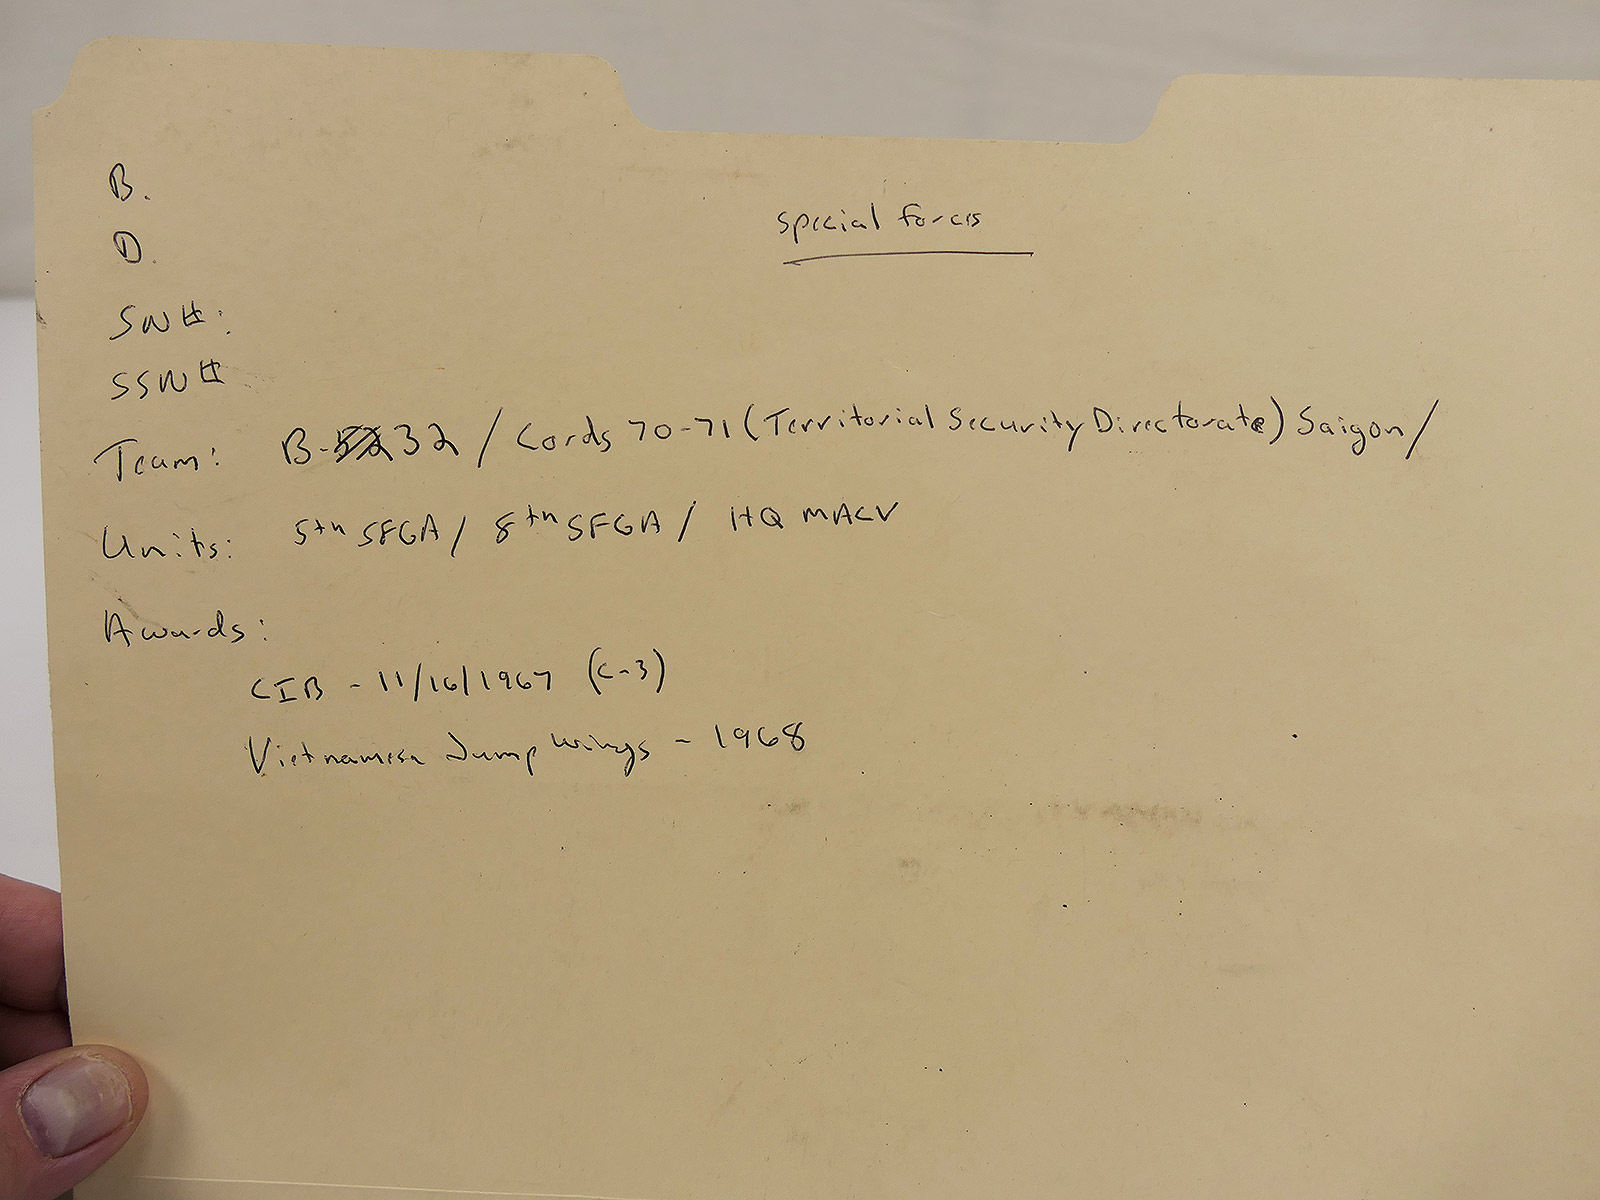 B.
D.
Special Forces
SN#:
SSN#
Team: B-52 32 / Cords 70-71 (Territorial Security Directorate) Saigon /
Units: 5th SFGA / 8th SFGA / HQ MACV
Awards:
CIB - 11/16/1967 (C-3)
Vietnamese Jump Wings - 1968